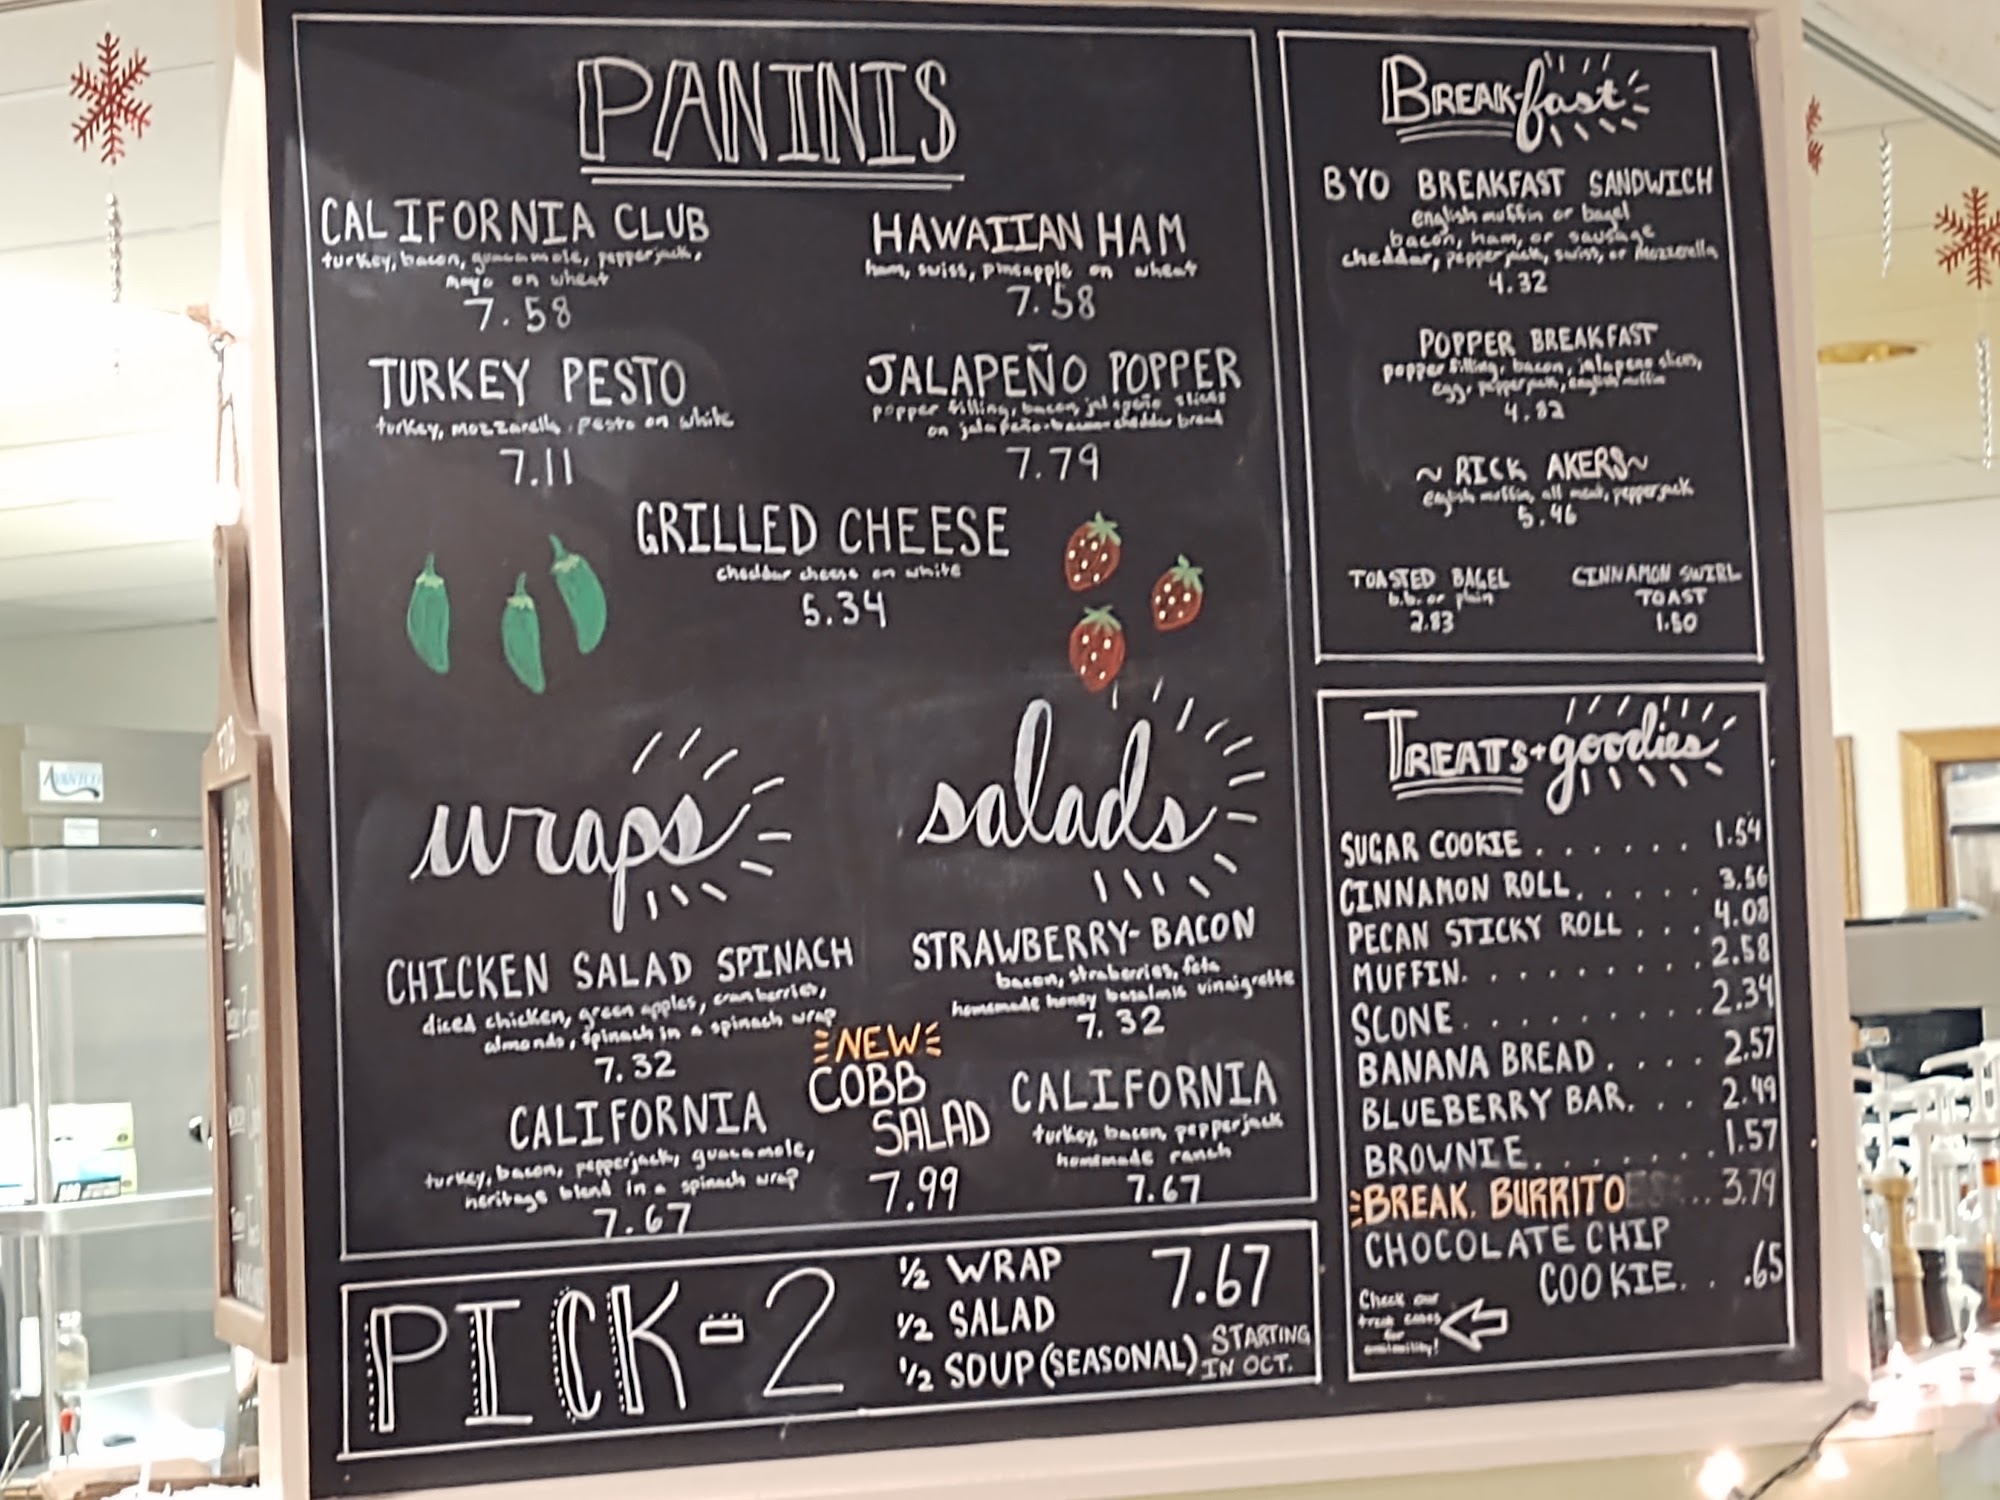 PANINIS
CALIFORNIA CLUB
turkey, bacon, guacamole, pepperjack,
mayo on wheat
7.58
HAWAIIAN HAM
ham, swiss, pineapple on wheat
7.58
TURKEY PESTO
turkey, mozzarella, pesto on white
7.11
JALAPEÑO POPPER
popper filling, bacon, jalapeño slices
on jalapeño-bacon-cheddar bread
7.79
GRILLED CHEESE
cheddar cheese on white
5.34
wraps
CHICKEN SALAD SPINACH
diced chicken, green apples, cranberries,
almonds, spinach in a spinach wrap
7.32
CALIFORNIA
turkey, bacon, pepperjack, guacamole,
heritage blend in a spinach wrap
7.67
salads
STRAWBERRY-BACON
bacon, straberries, feta
homemade honey basalmic vinaigrette
7.32
NEW
COBB
SALAD
7.99
CALIFORNIA
turkey, bacon, pepperjack
homemade ranch
7.67
PICK-2
1/2 WRAP
1/2 SALAD
1/2 SOUP (SEASONAL) STARTING
IN OCT.
7.67
BREAKfast
BYO BREAKFAST SANDWICH
english muffin or bagel
bacon, ham, or sausage
cheddar, pepperjack, swiss, or mozzerella
4.32
POPPER BREAKFAST
popper filling, bacon, jalapeno slices,
egg, pepperjack, english muffin
4.82
~ RICK AKERS ~
english muffin, all meat, pepperjack
5.46
TOASTED BAGEL
b.b. or plain
2.83
CINNAMON SWIRL
TOAST
1.50
TREATS + goodies
SUGAR COOKIE . . . . . . 1.54
CINNAMON ROLL . . . . . 3.56
PECAN STICKY ROLL . . . 4.08
MUFFIN. . . . . . . . . 2.58
SCONE . . . . . . . . . 2.34
BANANA BREAD . . . . 2.57
BLUEBERRY BAR. . . 2.49
BROWNIE. . . . . . . 1.57
BREAK. BURRITO ... 3.79
CHOCOLATE CHIP
COOKIE. . .65
Check our
for
AVANTCO